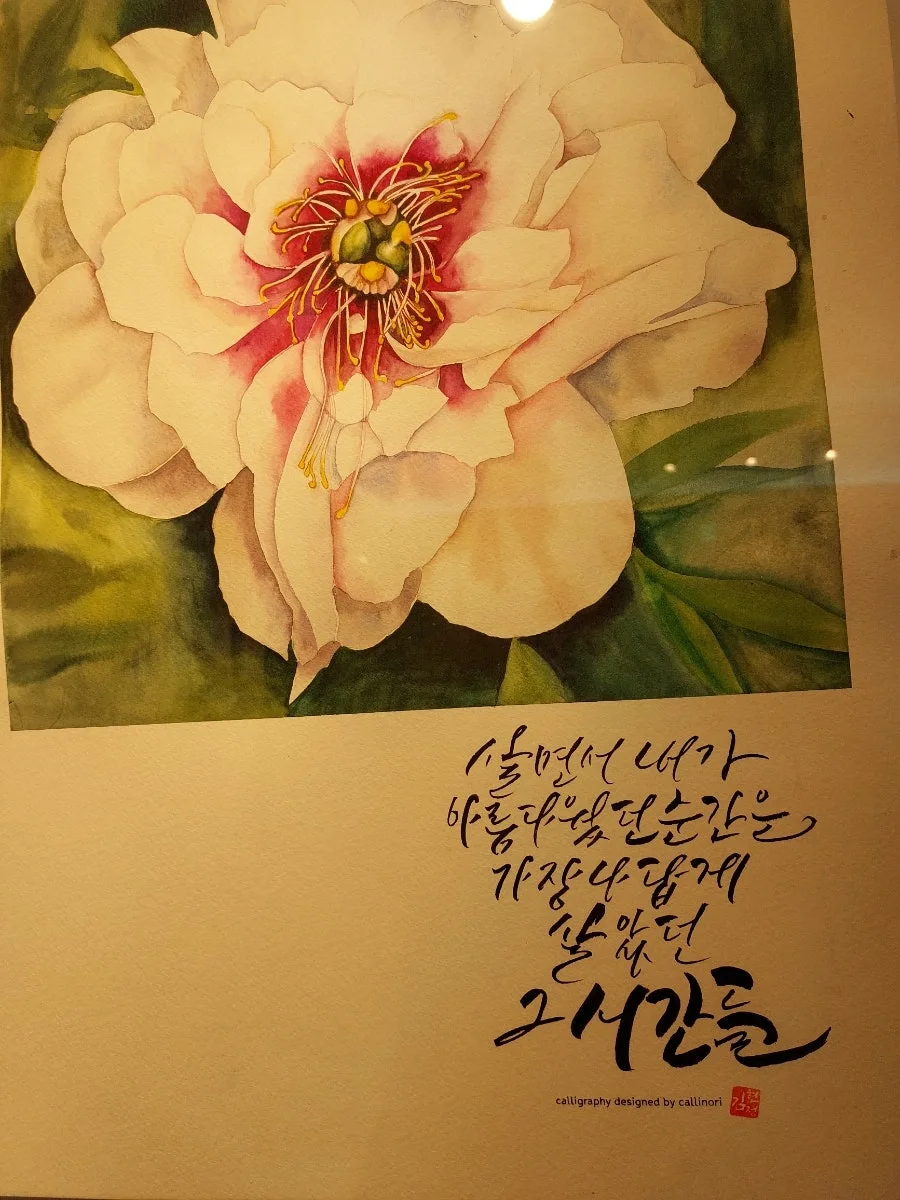 살면서 내가
아름다웠던 순간은
가장 나답게
살았던
그 시간들
calligraphy designed by callinori